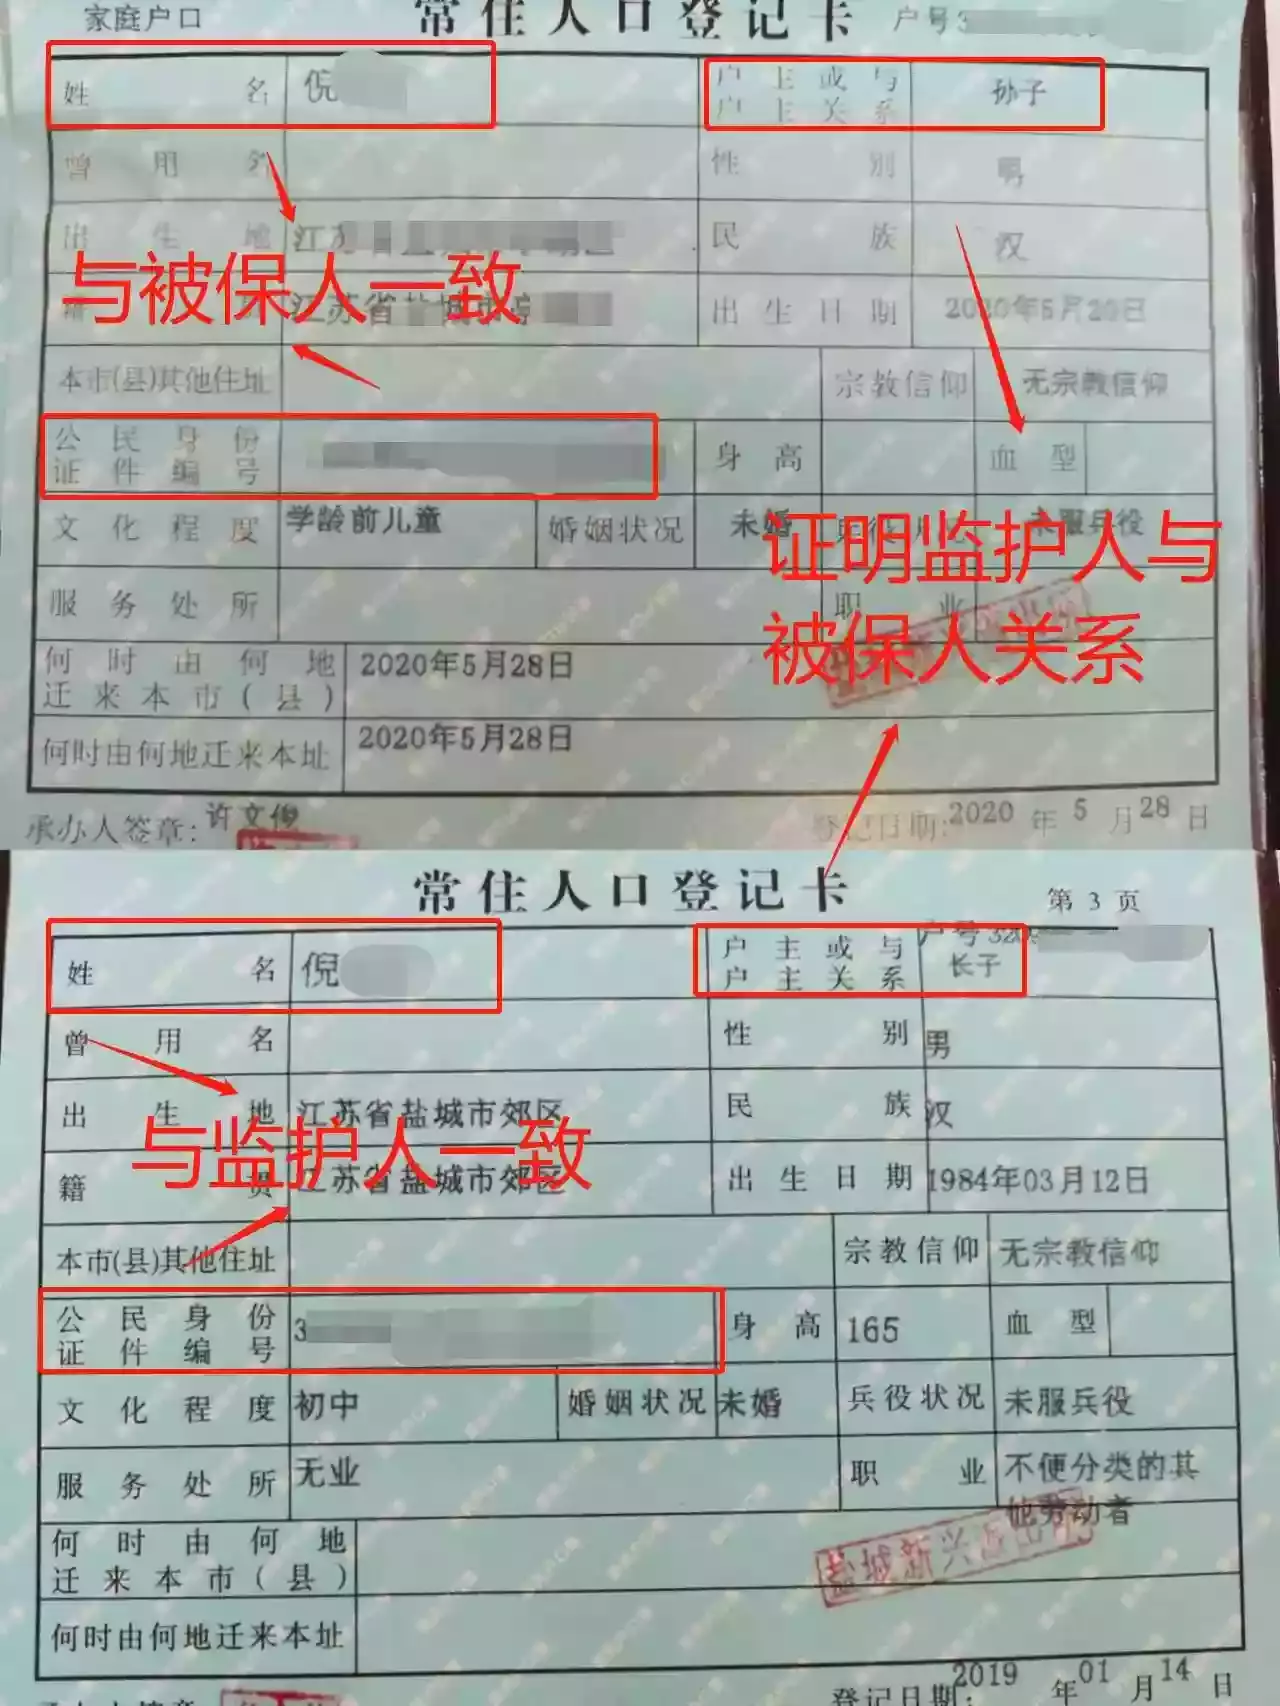 家庭户口 常住人口登记卡 户号3
姓名 倪 户主或与户主关系 孙子
曾用名 性别 男
出生地 江 民族 汉
与被保人一致
江苏省盐城市 出生日期 2020年5月20日
本市(县)其他住址 宗教信仰 无宗教信仰
公民身份证件编号 身高 血型
文化程度 学龄前儿童 婚姻状况 未婚 未服兵役
证明监护人与
服务处所 职业
被保人关系
何时由何地迁来本市(县) 2020年5月28日
何时由何地迁来本址 2020年5月28日
承办人签章: 许文俊 登记日期:2020年5月28日
常住人口登记卡 第3页
户号320
姓名 倪 户主或与户主关系 长子
曾用名 性别 男
出生地 江苏省盐城市郊区 民族 汉
与监护人一致
籍贯 江苏省盐城市郊区 出生日期 1984年03月12日
本市(县)其他住址 宗教信仰 无宗教信仰
公民身份证件编号 3 身高 165 血型
文化程度 初中 婚姻状况 未婚 兵役状况 未服兵役
服务处所 无业 职业 不便分类的其他劳动者
盐城新兴派出所
何时由何地迁来本市(县)
何时由何地迁来本址
承办人签章 登记日期:2019年01月14日